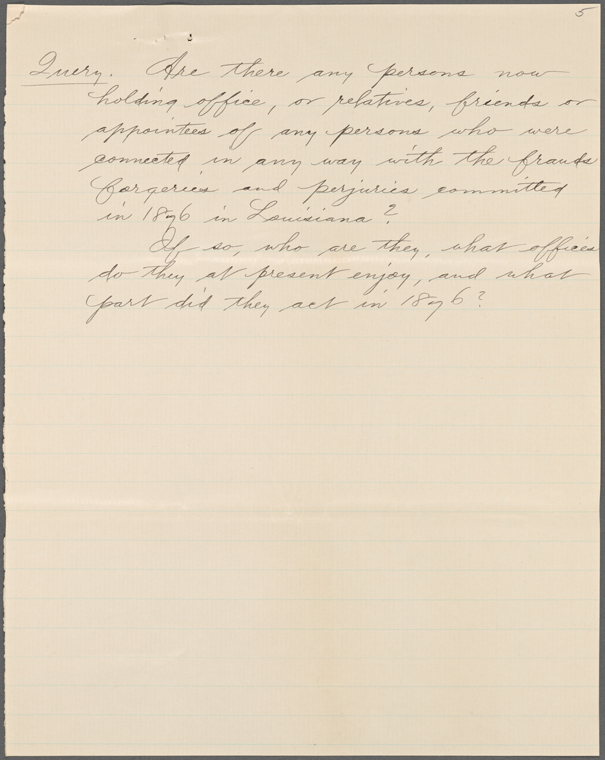 5
Query. Are there any persons now
holding office, or relatives, friends or
appointees of any persons who were
connected in any way with the frauds
forgeries and perjuries committed
in 1876 in Louisiana?
If so, who are they, what offices
do they at present enjoy, and what
part did they act in 1876?